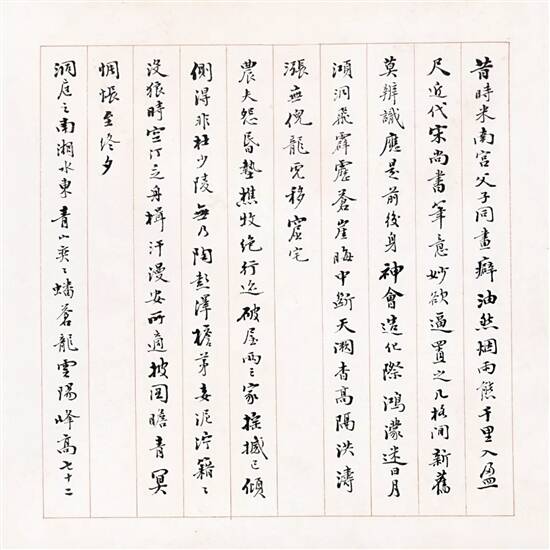 昔時米南宮父子同畫癖油然烟雨態千里入盈
尺近代宋尚書筆意妙欲逼置之几格間新舊
莫辨識應是前後身神會造化際鴻濛迷日月
澒洞飛霹靂蒼崖晦中斷天溯杳高隔洪濤
漲無倪龍兕移窟宅
農夫怨昏墊樵牧絶行迹破屋兩三家摧撼已傾
側得非杜少陵無乃陶彭澤檐茅妄泥濘籍〻
沒狼時空江之舟楫汗漫安所適披圖瞻青冥
惆悵至終夕
洞庭之南湘水東青山奕〻蟠蒼龍雲陽峰高七十二